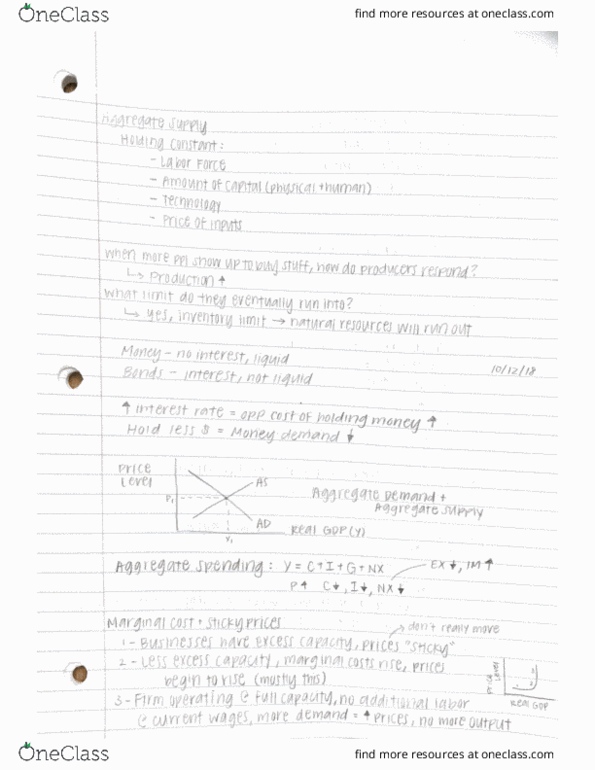 OneClass
find more resources at oneclass.com
Aggregate Supply
Holding constant:
- Labor Force
- Amount of capital (physical + human)
- Technology
- Price of inputs
When more ppl show up to buy stuff, how do producers respond?
↳ Production ↑
What limit do they eventually run into?
↳ yes, inventory limit → natural resources will run out
Money - no interest, liquid
10/12/18
Bonds - interest, not liquid
↑ interest rate = opp cost of holding money ↑
Hold less $ = Money demand ↓
Price
Level
AS
P₁
Aggregate Demand +
Aggregate Supply
AD
Y₁
Real GDP (Y)
Aggregate Spending: Y = C + I + G + NX
EX ↓, IM ↑
P↑ C↓, I↓, NX↓
Marginal cost + sticky prices
don't really move
1 - Businesses have excess capacity, prices "sticky"
2 - Less excess capacity, marginal costs rise, prices
begin to rise (mostly this)
Price
Level
Real GDP
3 - Firm operating @ full capacity, no additional labor
@ current wages, more demand = ↑ prices, no more output
OneClass
find more resources at oneclass.com